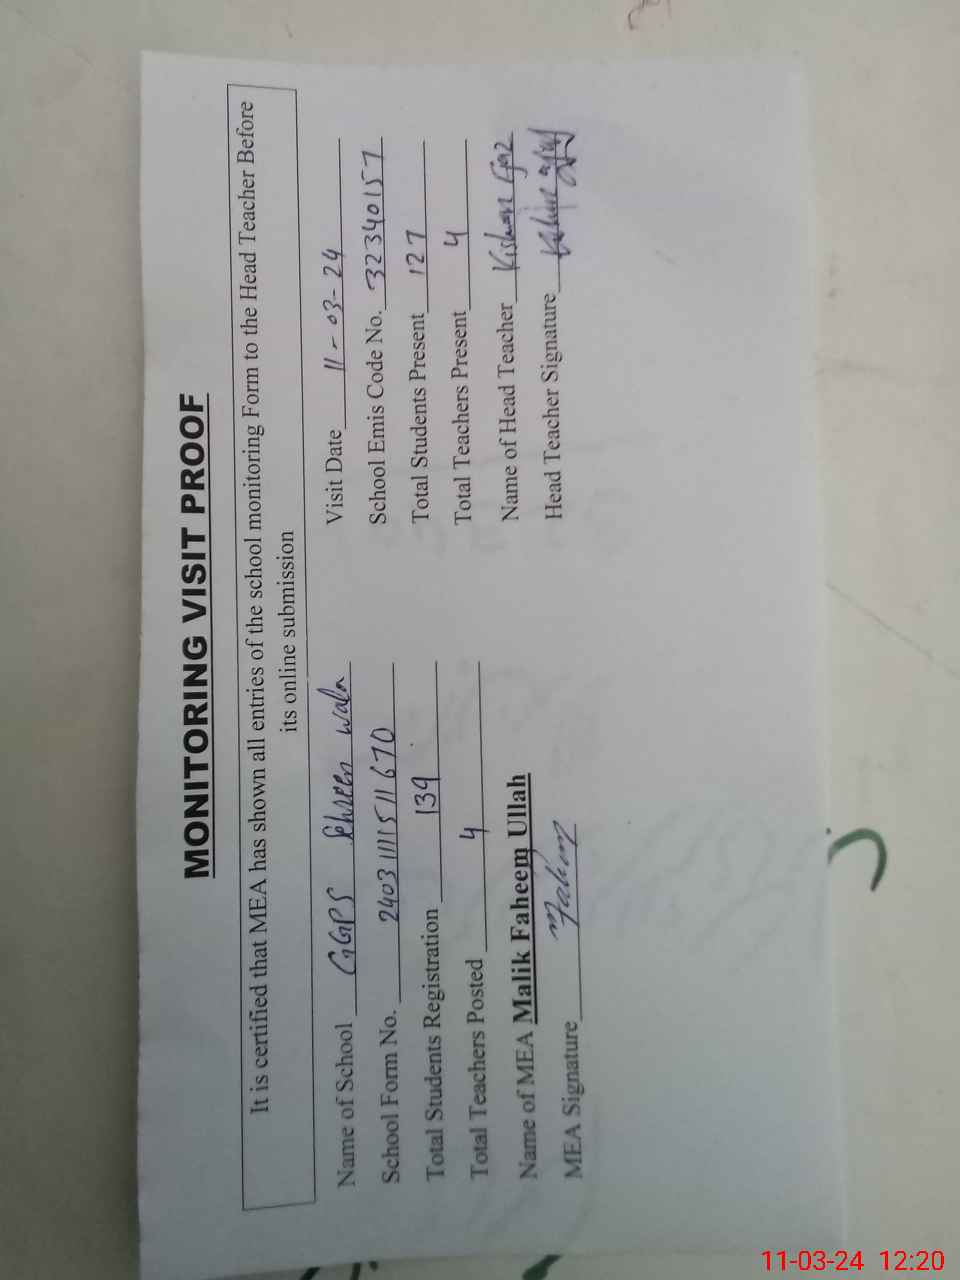 MONITORING VISIT PROOF
It is certified that MEA has shown all entries of the school monitoring Form to the Head Teacher Before
its online submission
Name of School GGPS wala
Visit Date 11-03-24
School Form No. 24031111511670
School Emis Code No. 32340157
Total Students Registration 139
Total Students Present 127
Total Teachers Posted 4
Total Teachers Present 4
Name of MEA Malik Faheem Ullah
Name of Head Teacher
MEA Signature Fahim
Head Teacher Signature
11-03-24 12:20